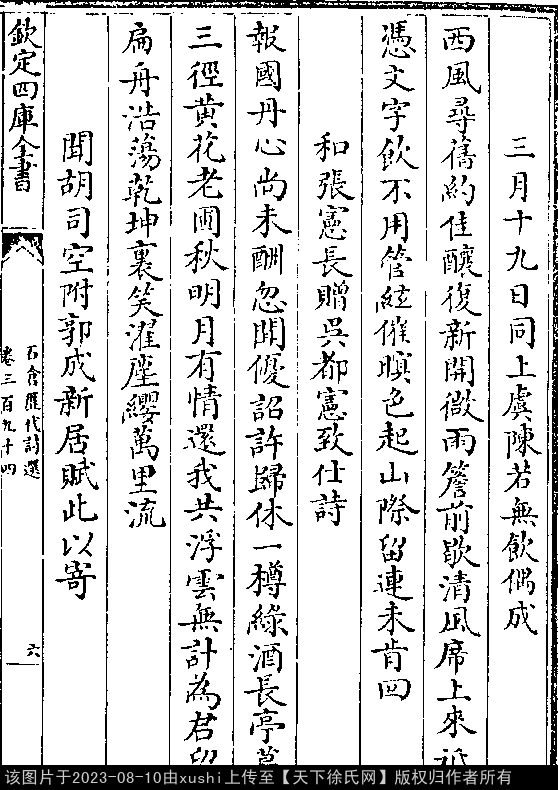 三月十九日同上虞陳若無飲偶成
西風尋舊約佳釀復新開微雨簷前歇清風席上來
憑文字飲不用管絃催暝色起山際留連未肯回
和張憲長贈吳都憲致仕詩
報國丹心尚未酬忽聞優詔許歸休一樽綠酒長亭
三徑黃花老圃秋明月有情還我共浮雲無計為君
扁舟浩蕩乾坤裏笑濯塵纓萬里流
聞胡司空附郭成新居賦此以寄
欽定四庫全書
石倉歷代詩選
卷三百九十四
六
该图片于2023-08-10由xushi上传至【天下徐氏网】版权归作者所有